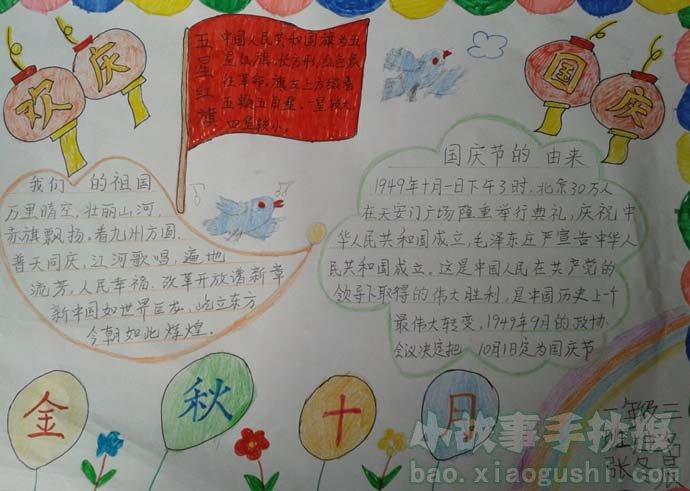 欢庆
国庆
五星红旗
中国人民共和国旗为五
星红旗，长方形，红色象
征革命，旗左上方缀着
五颗五角星，一星较大
四星较小。
我们的祖国
万里晴空，壮丽山河
赤旗飘扬。看九州方圆
普天同庆，江河歌唱，遍地
流芳，人民幸福，改革开放谱新章
新中国如世界巨龙，屹立东方
今朝如此辉煌。
国庆节的由来
1949年十月一日下午3时，北京30万人
在天安门广场隆重举行典礼，庆祝中
华人民共和国成立，毛泽东庄严宣告中华人
民共和国成立。这是中国人民在共产党的
领导下取得的伟大胜利，是中国历史上个
最伟大转变，1949年9月的政协
会议决定把10月1日定为国庆节
金秋十月
年级三
班
张
小故事手抄报
bao.xiaogushi.com